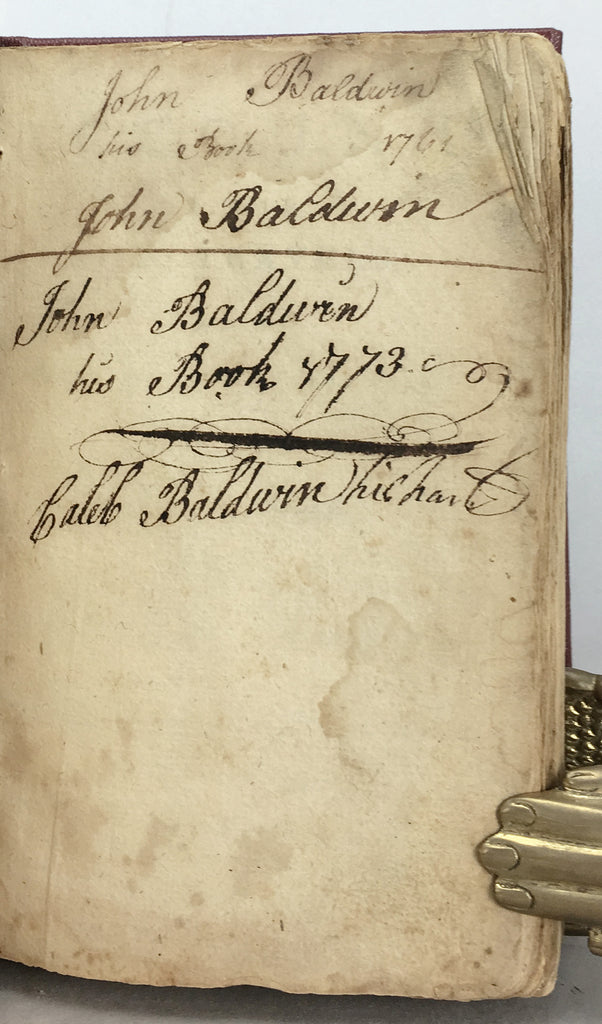 John Baldwin
his Book 1761
John Baldwin
John Baldwin
his Book 1773
Caleb Baldwin